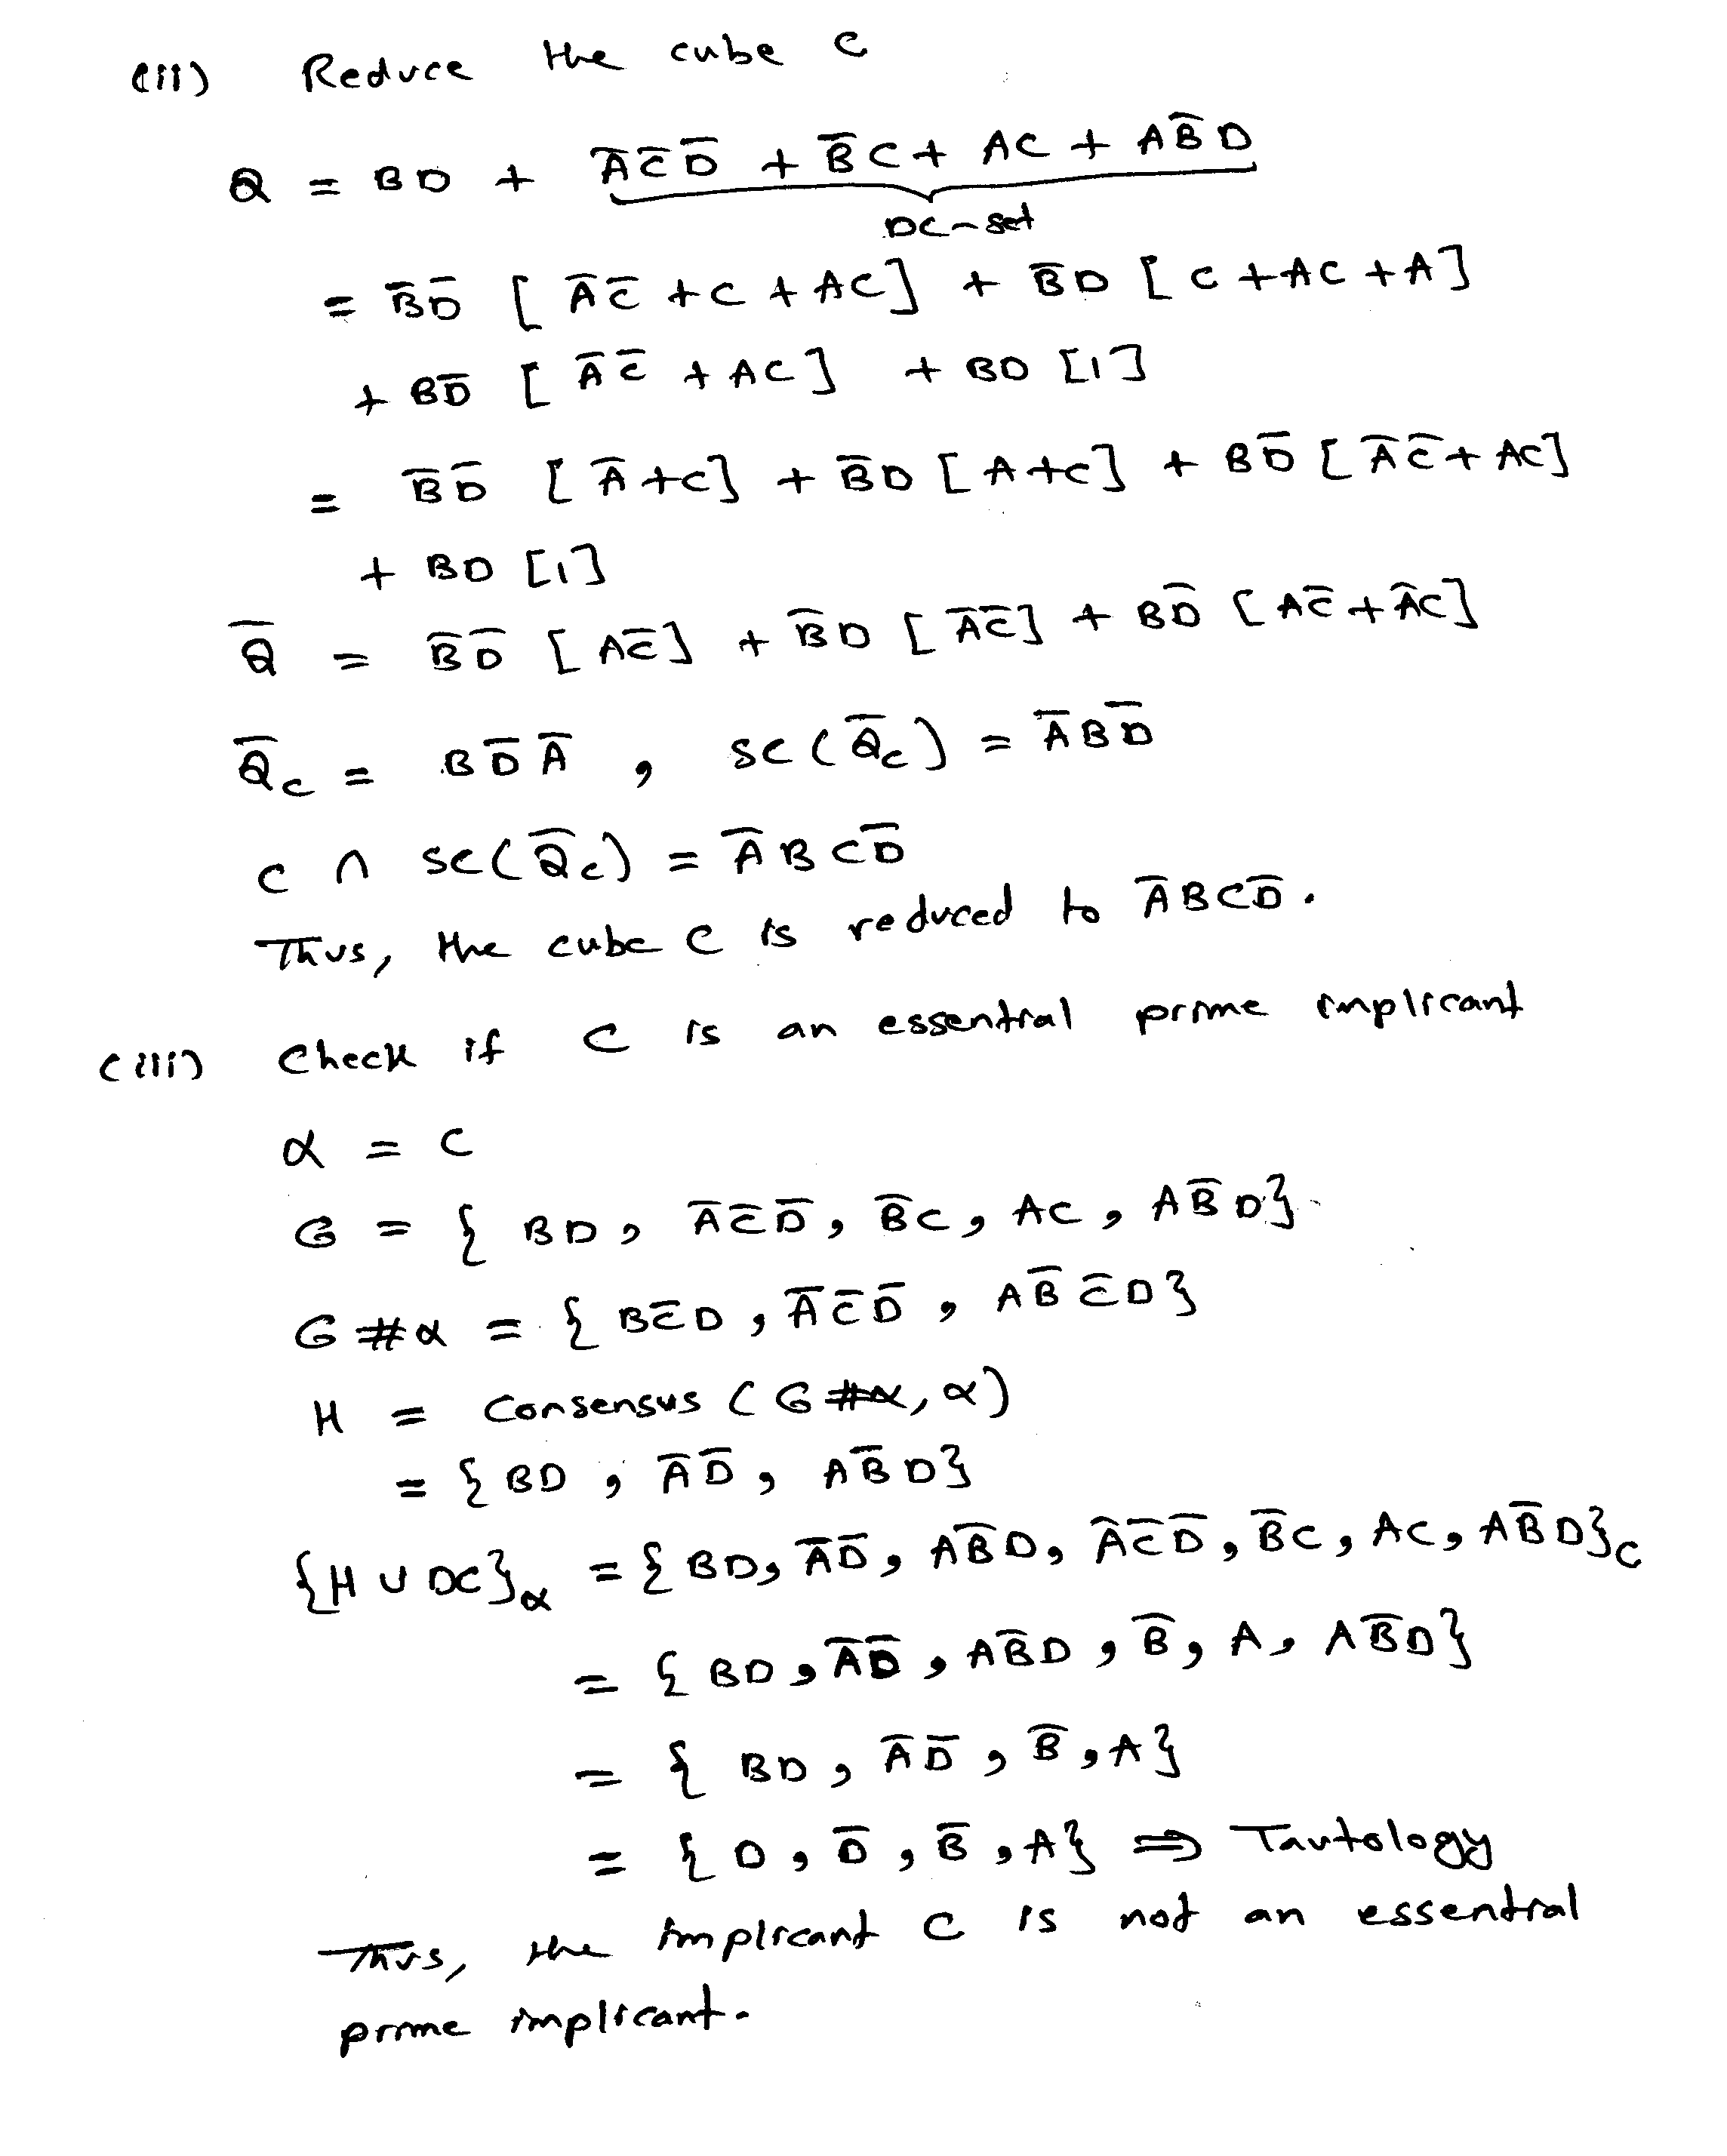 (ii) Reduce the cube C
Q = BD + A̅C̅D̅ + B̅C + AC + AB̅D
DC-set
= B̅D̅ [ A̅C̅ + C + AC] + B̅D [ C + AC + A]
+ BD̅ [ A̅C̅ + AC ] + BD [1]
= B̅D̅ [ A̅ + C] + B̅D [ A + C] + BD̅ [ A̅C̅ + AC]
+ BD [1]
Q̅ = B̅D̅ [ AC̅] + B̅D [ A̅C̅] + BD̅ [ AC̅ + A̅C]
Q̅c = BD̅A̅ , SC(Q̅c) = A̅BD̅
C ∩ SC(Q̅c) = A̅BCD̅
Thus, the cube C is reduced to A̅BCD̅.
(iii) Check if C is an essential prime implicant
α = C
G = { BD, A̅C̅D̅, B̅C, AC, AB̅D}
G#α = { BC̅D, A̅C̅D̅, AB̅C̅D}
H = Consensus (G#α, α)
= { BD, A̅D̅, AB̅D}
{H ∪ DC}α = { BD, A̅D̅, AB̅D, A̅C̅D̅, B̅C, AC, AB̅D}c
= { BD, A̅D̅, AB̅D, B̅, A, AB̅D}
= { BD, A̅D̅, B̅, A}
= { D, D̅, B̅, A} ⇒ Tautology
Thus, the implicant C is not an essential
prime implicant.